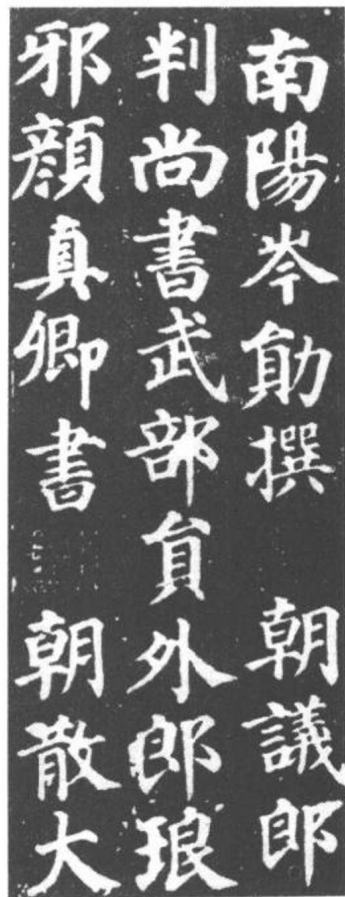 南陽岑勛撰 朝議郎
判尚書武部員外郎琅
邪顏真卿書 朝散大